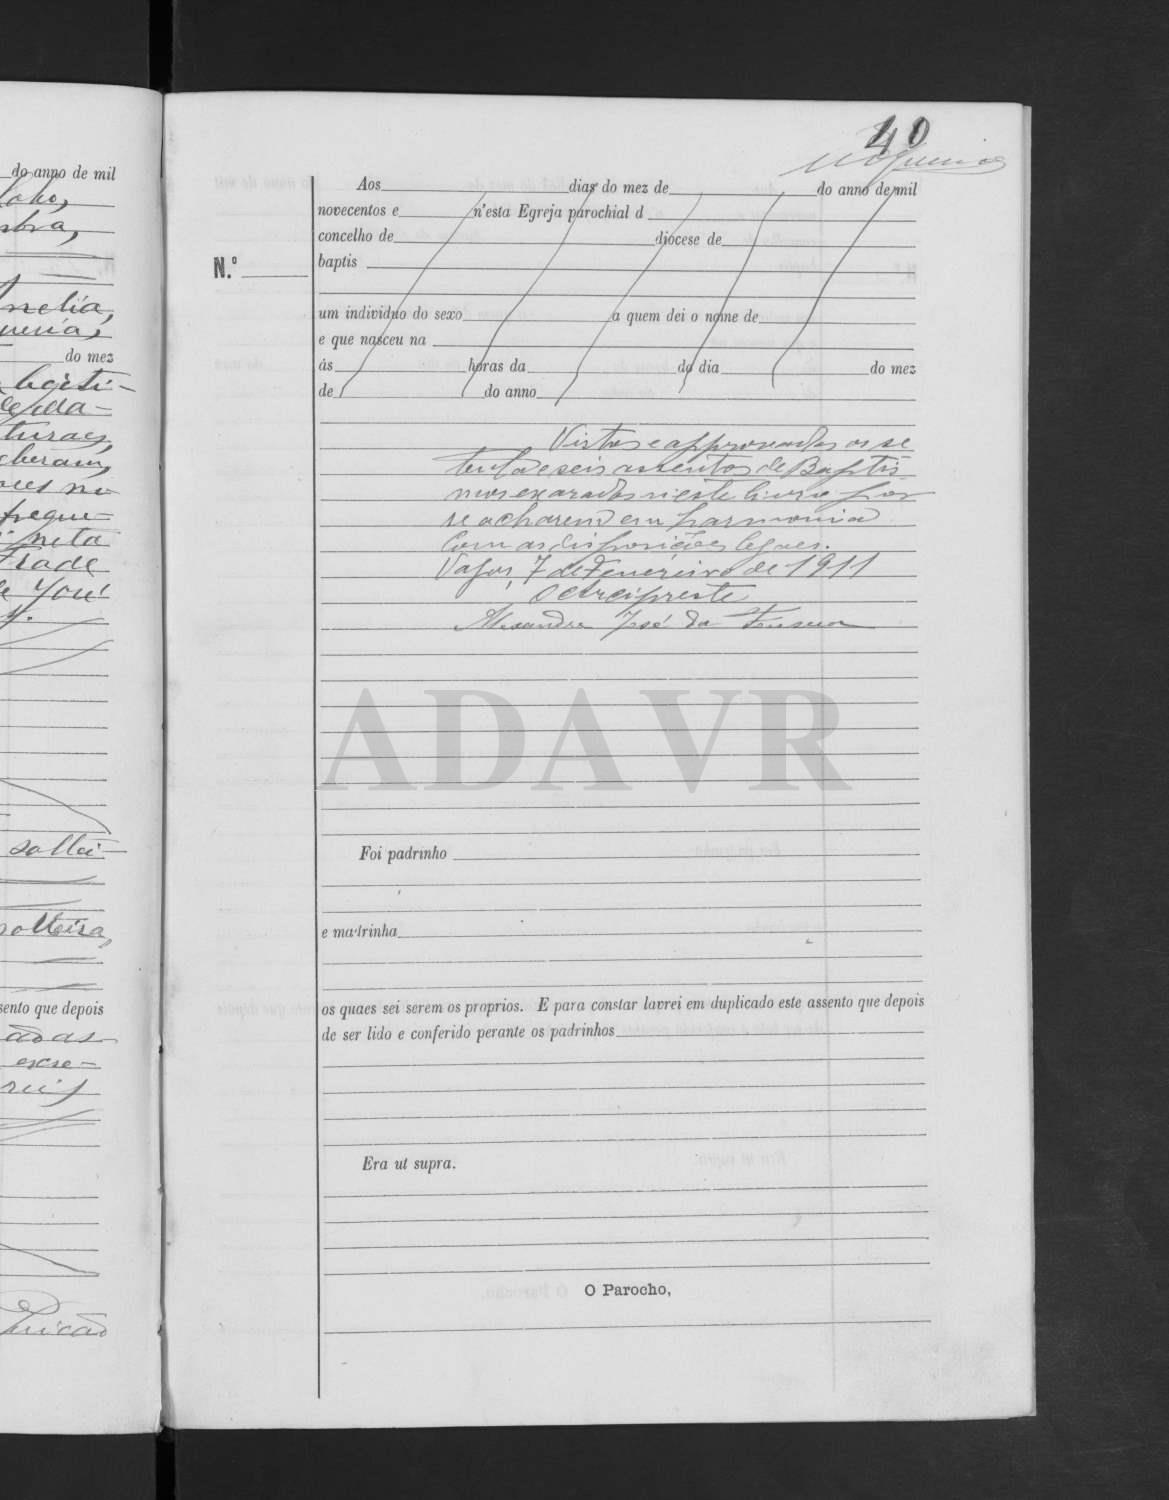 do anno de mil
do mez
solteira,
sento que depois
40
Nogueira
Aos dias do mez de do anno de mil
novecentos e n'esta Egreja parochial d
concelho de diocese de
N.º
baptis
um individuo do sexo a quem dei o nome de
e que nasceu na
ás horas da do dia do mez
de do anno
Vistos e approvados os se
tenta e seis assentos de Baptis
mos exarados n'este livro por
se acharem em harmonia
com as disposições legaes.
Vagos, 7 de Fevereiro de 1911
O Arcipreste
Alexandre José da Fonseca
ADAVR
Foi padrinho
e madrinha
os quaes sei serem os proprios. E para constar lavrei em duplicado este assento que depois
de ser lido e conferido perante os padrinhos
Era ut supra.
O Parocho,